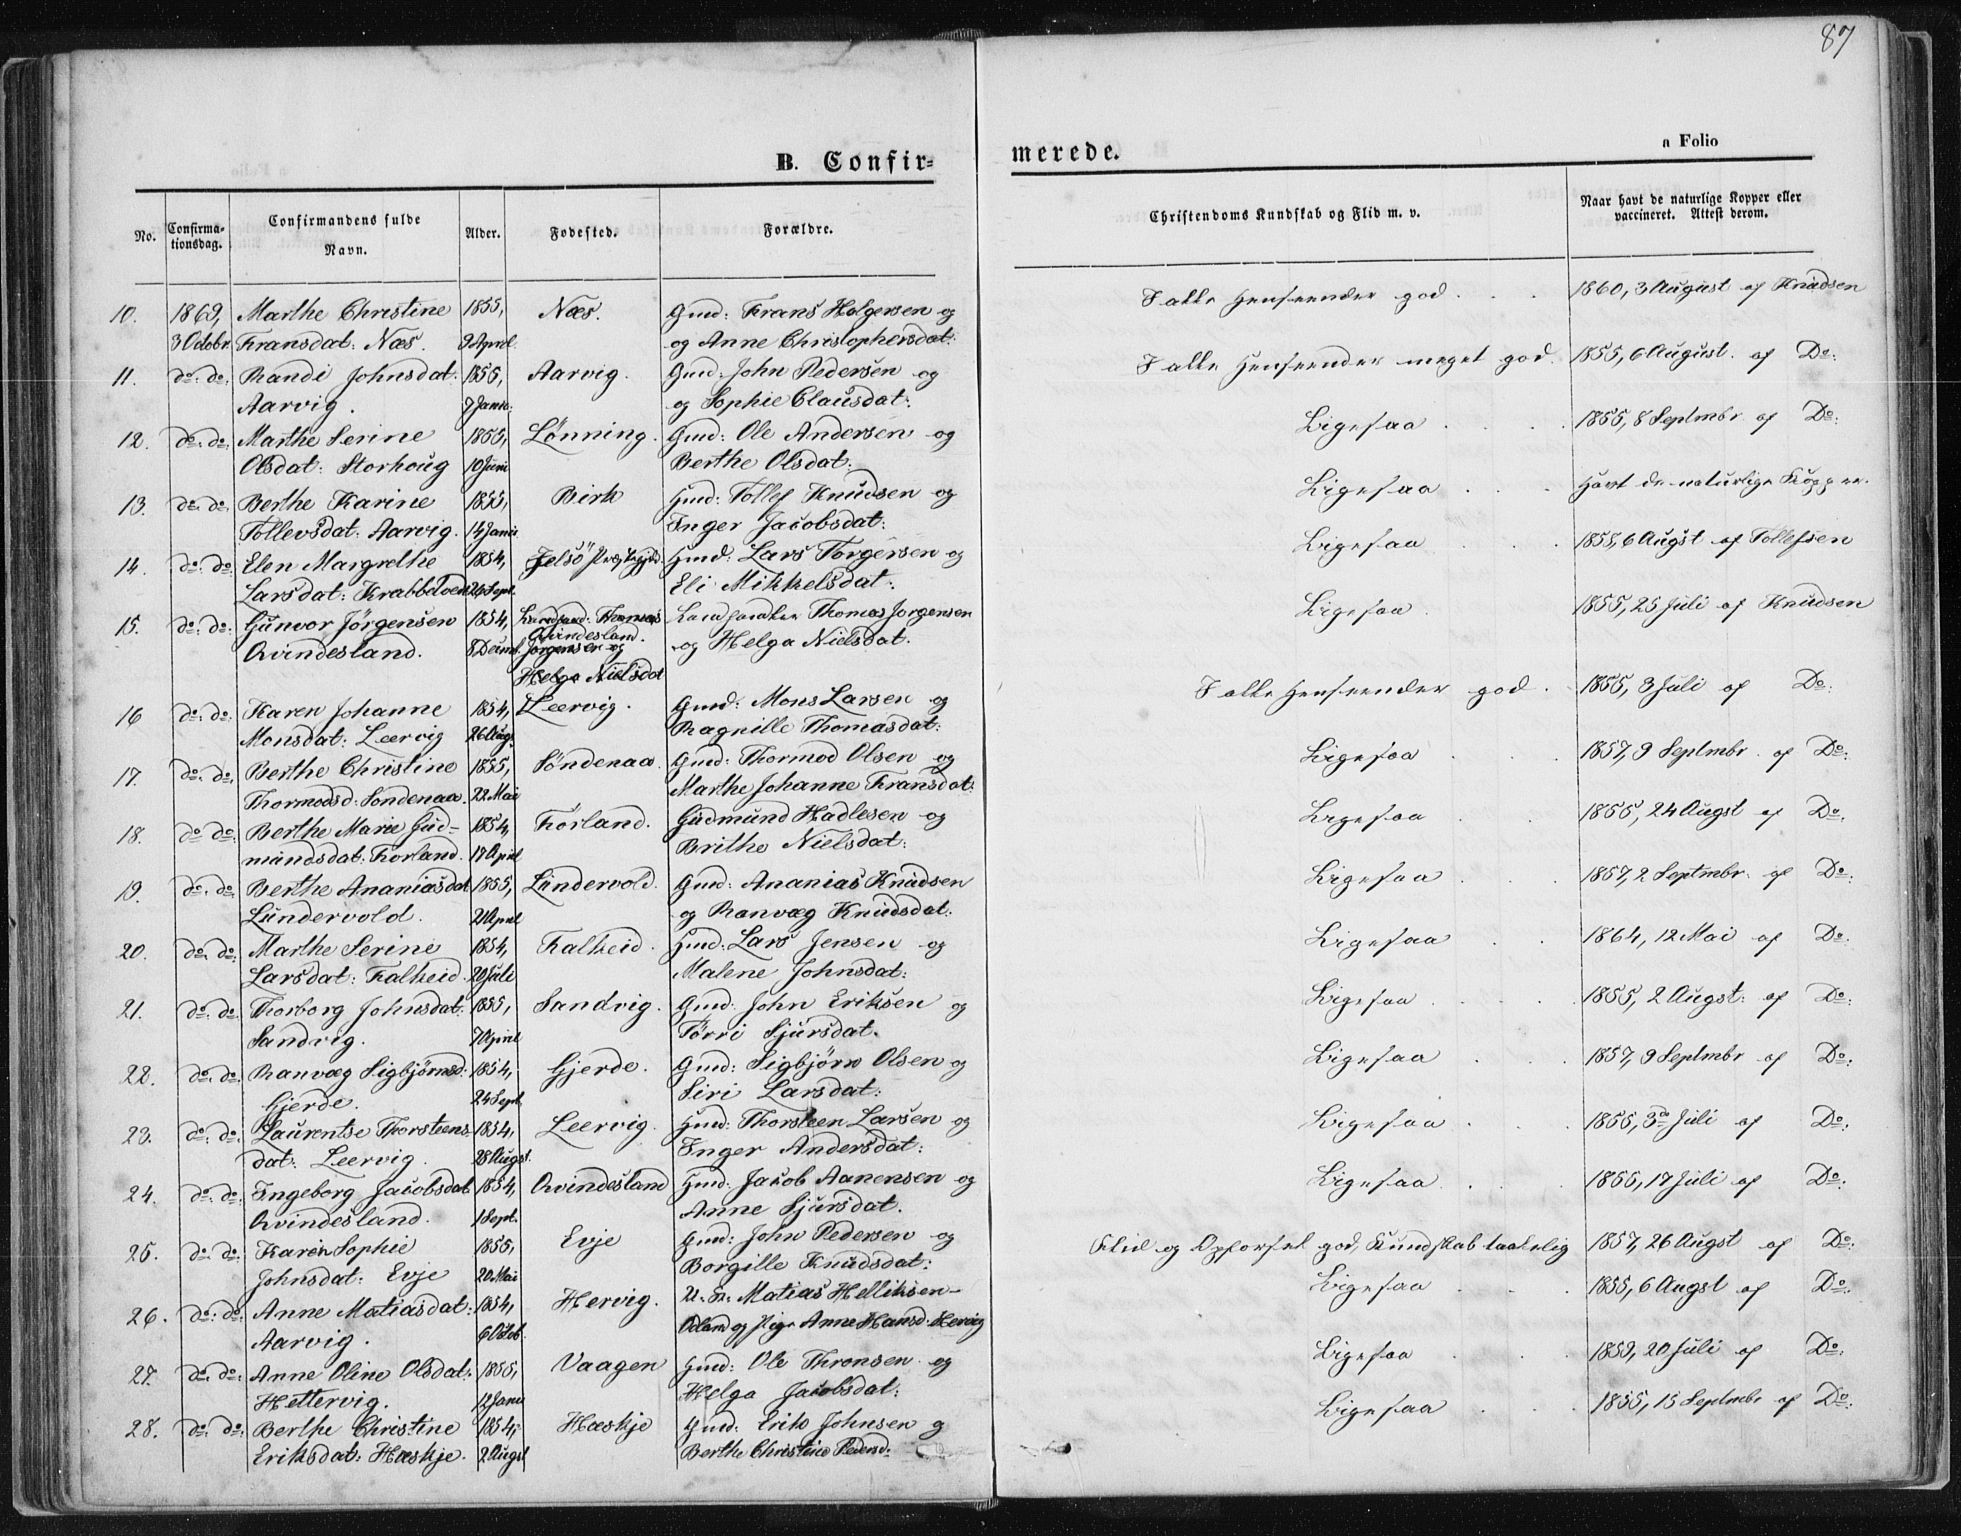 87
B. Confir=
merede.
n Folio
No.
Confirma-
tionsdag.
Confirmandens fulde
Navn.
Alder.
Fødested.
Forældre.
Christendoms Kundskab og Flid m. v.
Naar havt de naturlige Kopper eller
vaccineret. Attest derom.
10. 1869, Marthe Christine 1855, Næs. Gmd: Frans Holgersen og I alle Henseender god. 1860, 3 August af Knudsen
3 Octobr. Fransdat: Næs. 9 April. og Anne Christophersdat:
11. do: do: Randi Johnsdat: 1855, Aarvig. Gmd: John Pedersen og I alle Henseender meget god. 1855, 6 August. af Do:
Aarvig. 7 Janu: og Sophie Clausdat:
12. do: do: Marthe Serine 1855, Lønning. Gmd: Ole Andersen og Ligesaa 1855, 8 Septmbr. af Do:
Olsdat: Storhoug 10 Juni Berthe Olsdat:
13. do: do: Berthe Karine 1855, Birk Gmd: Tollef Knudsen og Ligesaa Havt de naturlige Kopper.
Tollevsdat: Aarvig. 14 Janu: Inger Jacobsdat:
14. do: do: Elen Margrethe 1854, Jelsö Gmd: Lars Torgersen og Ligesaa 1855, 6 Augst af Tollefsen
Larsdat: 24 Sept. Eli Mikkelsdat:
15. do: do: Gunvor Jörgensen 1854, Landhand: Thomas Landhandler Thomas Jorgensen Ligesaa 1855, 25 Juli af Knudsen
Qvindesland. 8 Decmb. Qvindesland. Jorgensen og og Helga Nielsdat.
Helga Nielsdat
16 do: do: Karen Johanne 1854, Leervig. Gmd: Mons Larsen og I alle Henseender god. 1855, 3 Juli af Do:
Monsdat: Leervig 26 Aug. Ragnille Thomasdat:
17. do: do: Berthe Christine 1855, Söndenaa. Gmd: Thormod Olsen og Ligesaa 1857, 9 Septmbr. af Do:
Thormodsd: Sondenaa. 22 Mai Marthe Johanne Fransdat:
18. do: do: Berthe Marie Gud- 1854, Førland. Gudmund Hadlesen og Ligesaa 1855, 24 Augst af Do:
mundsdat: Forland. 17 April Brithe Nielsdat:
19. do: do: Berthe Ananiasdat 1855, Lundervold. Gmd: Ananias Knudsen Ligesaa 1857, 2 Septmbr. af Do:
Lundervold. 21 April og Ranvæg Knudsdat:
20. do: do: Marthe Serine 1854, Falkeid. Gmd: Lars Jensen og Ligesaa 1864, 12 Mai af Do:
Larsdat: Falkeid. 20 Juli Malene Johnsdat:
21. do: do: Thorborg Johnsdat: 1855, Sandvig. Gmd: John Eriksen og Ligesaa 1855, 2 Augst: af Do:
Sandvig. 7 April Törri Sjursdat.
22. do: do: Ranvæg Sigbjörnsd: 1854, Gjerde. Gmd: Sigbjörn Olsen og Ligesaa 1857, 9 Septmbr af Do:
Gjerde. 24 Sept. Siri Larsdat:
23. do: do: Laurentse Thorsteens- 1854, Leervig. Gmd: Thorsteen Larsen og Ligesaa 1855, 3de Juli af Do:
dat: Leervig. 28 Augst. Inger Andersdat:
24. do: do: Ingeborg Jacobsdat 1854, Qvindesland Gmd: Jacob Aanensen og Ligesaa 1855, 17 Juli af Do:
Qvindesland. 1 Sept. Anne Sjursdat.
25. do: do: Karen Sophie 1855, Evje Gmd: John Pedersen og Flid og Opforsel god, Kundskab taalelig 1857, 26 Augst af Do:
Johnsdat: Evje 20 Mai Borgille Knudsdat:
26. do: do: Anne Matiasdat: 1854, Hervig. Matias Helliksen- Ligesaa 1855, 6 Augst af Do:
Aarvig. 6 Octob. Odland og Pige Anne Hansd: Hervig
27. do: do: Anne Oline Olsdat: 1855, Vaagen Gmd: Ole Thronsen og Ligesaa 1859, 20 Juli af Do:
Hettervig. 12 Janu Helga Jacobsdat:
28. do: do: Berthe Christine 1854, Hæskje Gmd: Erik Johnsen og Ligesaa 1855, 15 Septmbr af Do:
Eriksdat: Hæskje. 2 Augst Berthe Christine Pedersd: